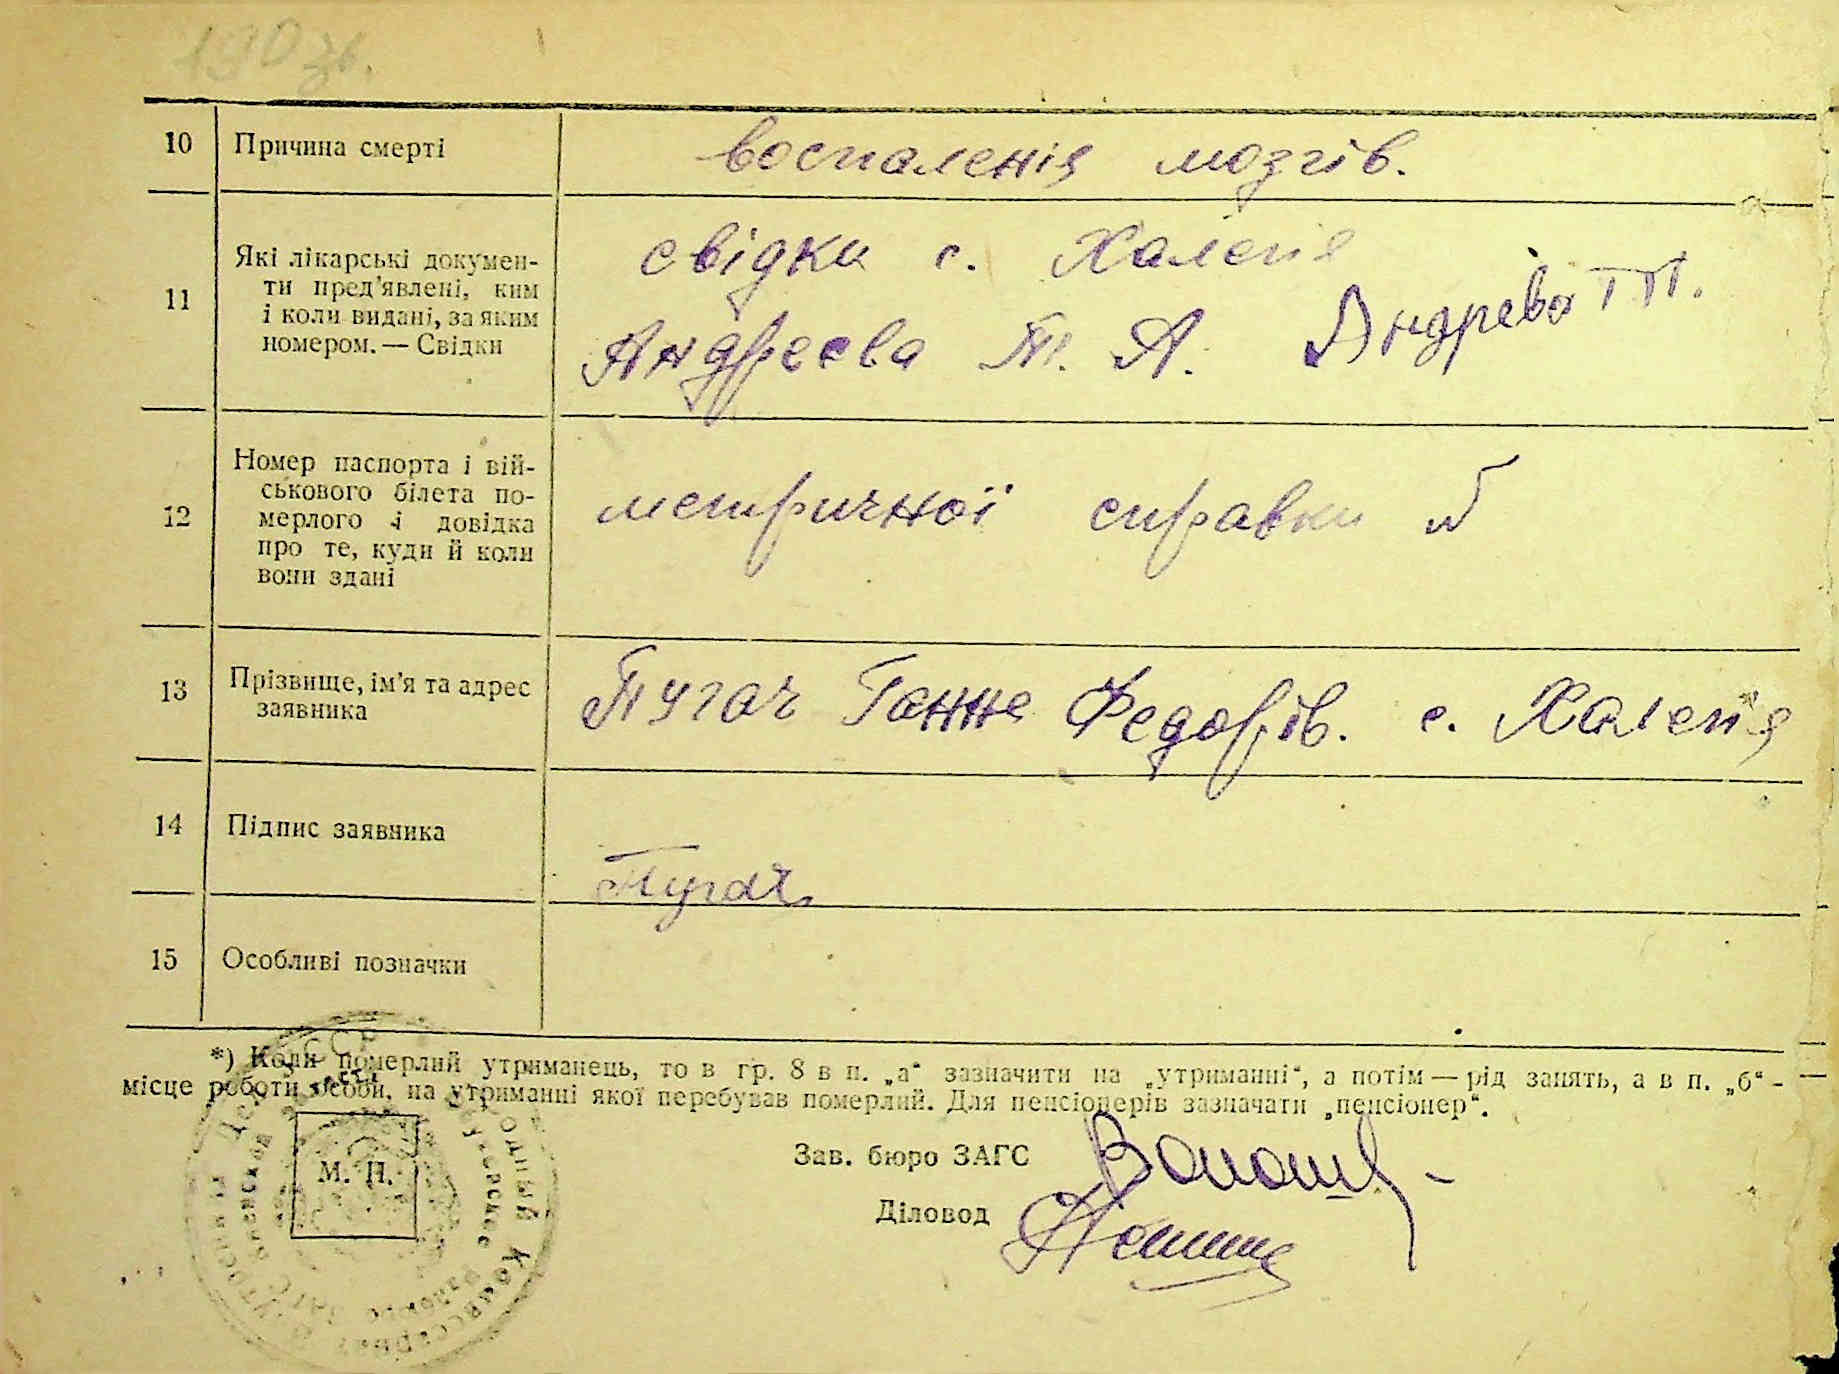 190 зв.
10 Причина смерті воспаленія мозгів.
11 Які лікарські докумен-
ти пред'явлені, ким
і коли видані, за яким
номером. — Свідки
свідки с. Халепя
Андреева Т. А. Андрева Т.
12 Номер паспорта і вій-
ськового білета по-
мерлого і довідка
про те, куди й коли
вони здані
метричної справки
13 Прізвище, ім'я та адрес
заявника
Пугач Ганна Федорів. с. Халепя
14 Підпис заявника
Пугач
15 Особливі позначки
*) Коли померлий утриманець, то в гр. 8 в п. „а“ зазначити на „утриманні“, а потім — рід занять, а в п. „б“ -
місце роботи особи, на утриманні якої перебував померлий. Для пенсіонерів зазначати „пенсіонер“.
М. П.
Зав. бюро ЗАГС
Діловод